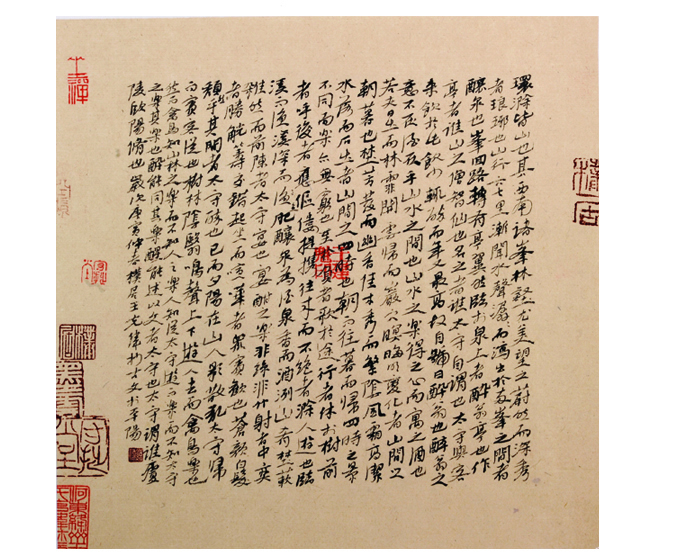 環滁皆山也其西南諸峯林壑尤美望之蔚然而深秀
者琅琊也山行六七里漸聞水聲潺而瀉出於兩峯之間者
釀泉也峯回路轉有亭翼然臨於泉上者醉翁亭也作
亭者誰山之僧智仙也名之者誰太守自謂也太守與客
來飲於此飲少輒醉而年又最高故自號曰醉翁也醉翁之
意不在酒在乎山水之間也山水之樂得之心而寓之酒也
若夫日出而林霏開雲歸而巖穴暝晦明變化者山間之
朝暮也野芳發而幽香佳木秀而繁陰風霜高潔
水落而石出者山間之四時也朝而往暮而歸四時之景
不同而樂亦無窮也至於負者歌於途行者休於樹前
者呼後者應傴僂提攜往來而不絕者滁人遊也臨
溪而漁溪深而漁肥釀泉為酒泉香而酒洌山肴野蔌
雜然而前陳者太守宴也宴酣之樂非絲非竹射者中奕
者勝觥籌交錯起坐而諠譁者衆賓歡也蒼顏白髮
頹乎其間者太守醉也已而夕陽在山人影散亂太守歸
而賓客從也樹林陰翳鳴聲上下遊人去而禽鳥樂也
然而禽鳥知山林之樂而不知人之樂人知從太守遊而樂而不知太守
之樂其樂也醉能同其樂醒能述以文者太守也太守謂誰廬
陵歐陽脩也歲次庚寅仲春樸居王光於平陽